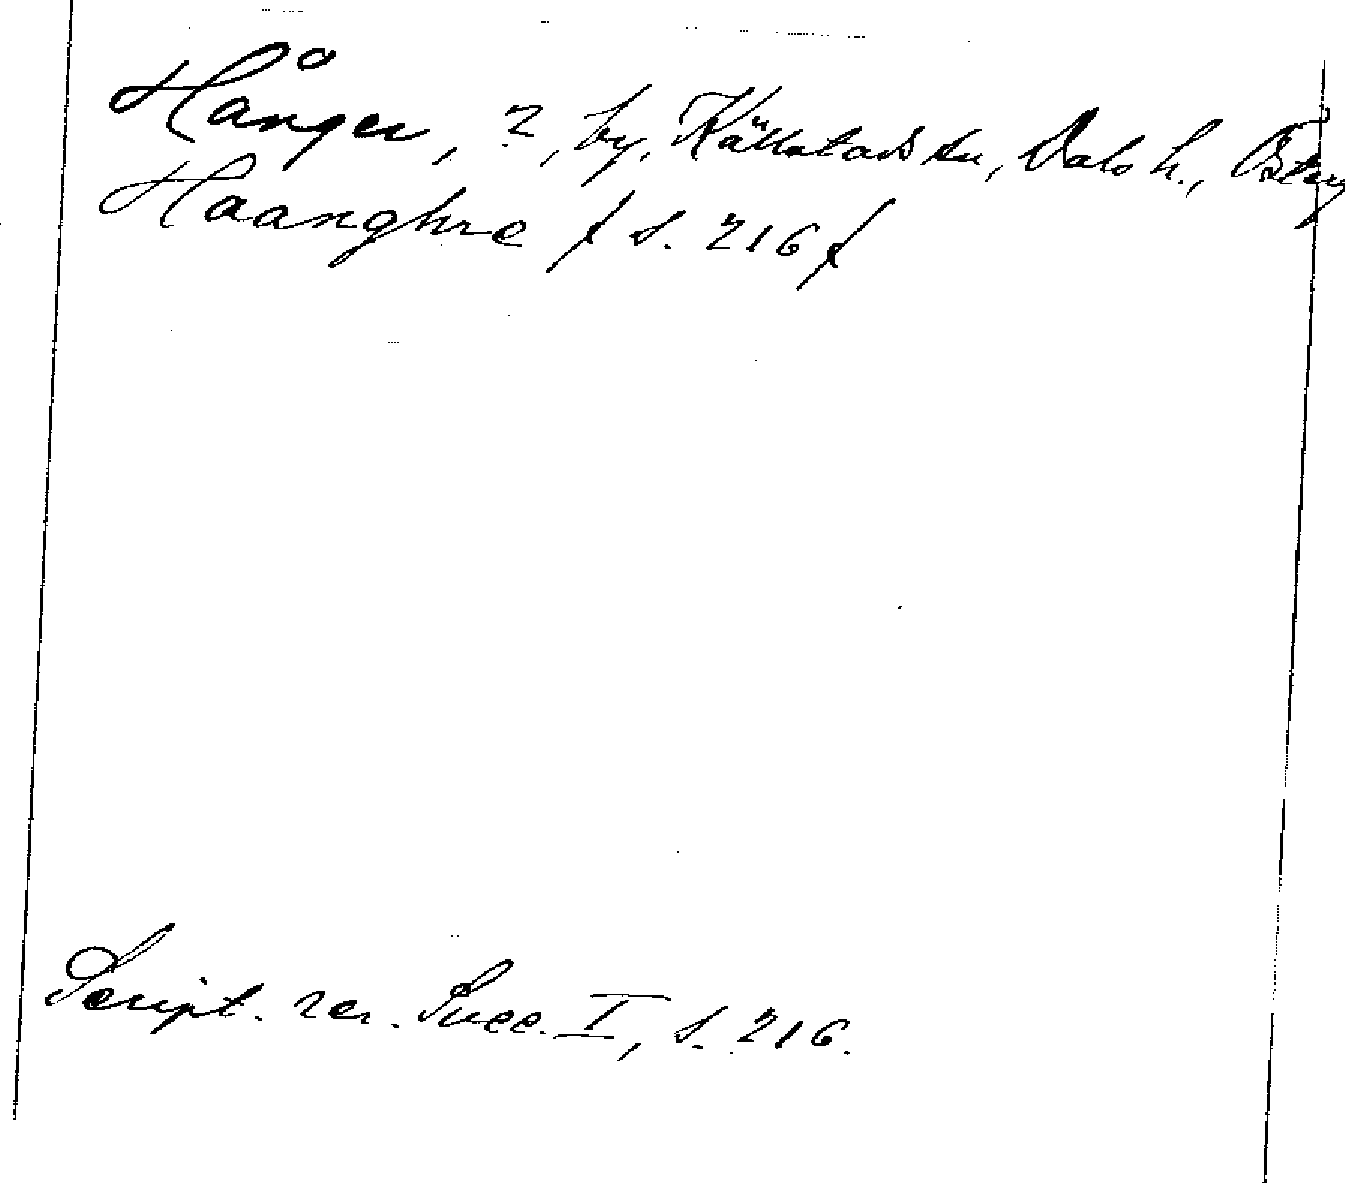 Hånger, ?, by, Källstads sn, Dals h., Östерg
Haanghre / s. 216 /
Script. rer. Svec. I, s. 216.